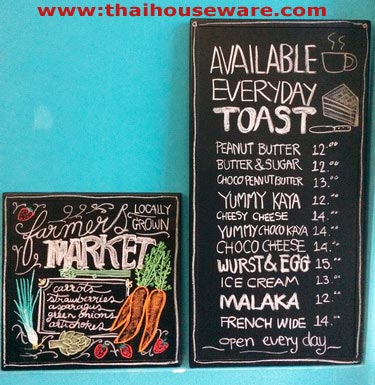 www.thaihouseware.com
AVAILABLE
EVERYDAY
TOAST
PEANUT BUTTER 12.00
BUTTER & SUGAR 12.00
CHOCO PEANUT BUTTER 13.00
YUMMY KAYA 12.00
CHEESY CHEESE 14.00
YUMMY CHOCO KAYA 14.00
CHOCO CHEESE 14.00
WURST & EGG 15.00
ICE CREAM 13.00
MALAKA 12.00
FRENCH WIDE 14.00
open every day
farmers
LOCALLY
GROWN
MARKET
carrots
strawberries
asparagus
green onions
artichokes